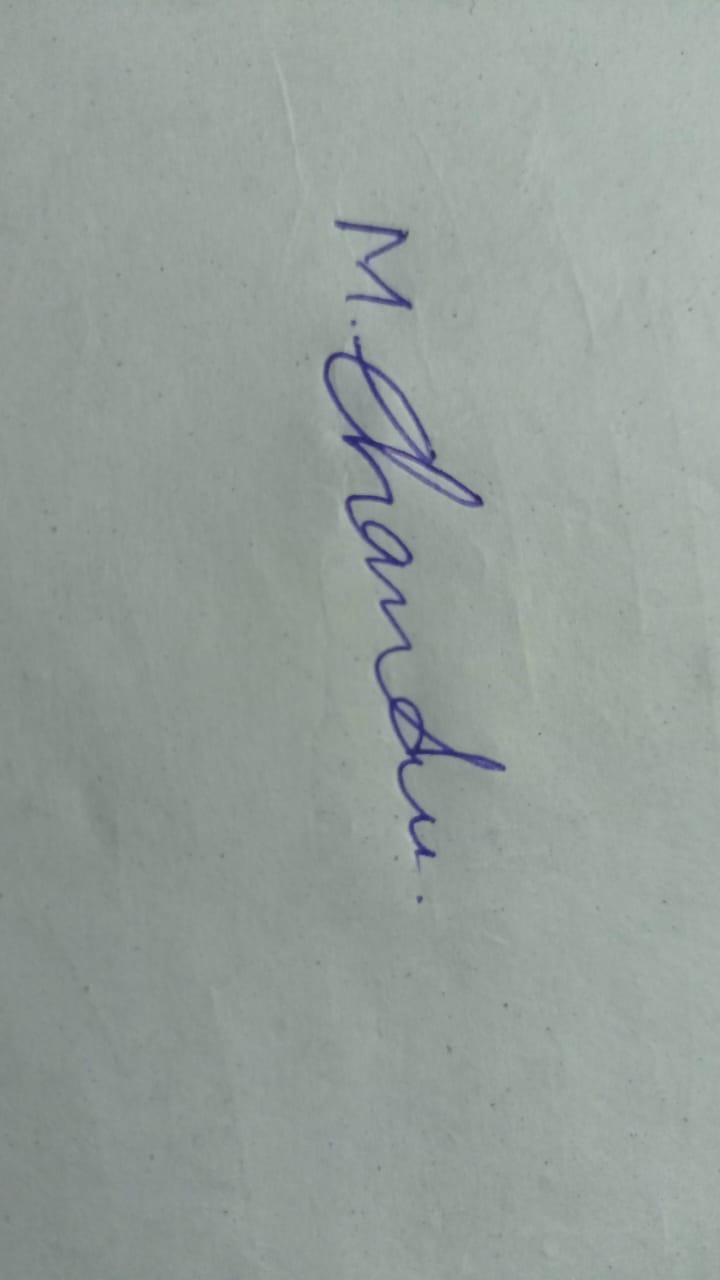 M. Chandu.